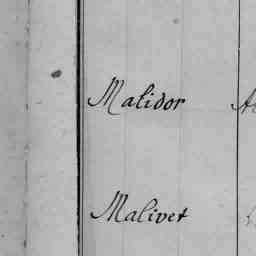 Malidor
Malivet